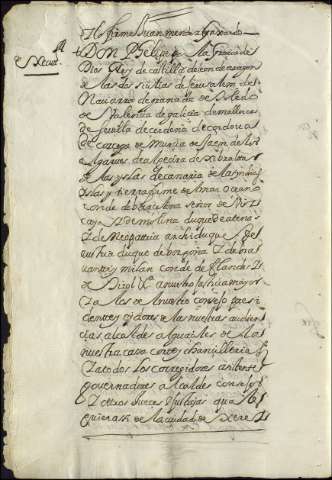 Don Phelipe de la graçia de
Dios Rey de castilla de leon de aragon
de las dos sicilias de jerusalem de
Navarra de granada de toledo
de Valencia de galicia de mallorcas
de sevilla de cerdeña de cordova
de corcega de Murcia de Jaen de los
algarves de algecira de gibraltar
de las yslas de canaria de las yndias
yslas y tierra firme del mar oceano
conde de barcelona señor de Viz
caya y de molina duque de atenas
y de Neopatria archiduque de
austria duque de borgoña y de bra
vante y milan conde de flandes y
de tirol &c a nuestro justicia mayor
y a los de nuestro consejo presi
dentes y oidores de las nuestras audien
cias alcaldes alguaciles de la
nuestra casa corte y chancilleria y
a todos los corregidores asistente
governadores alcaldes
y otros jueces e justicias qualesquier
de la ciudad de xerez